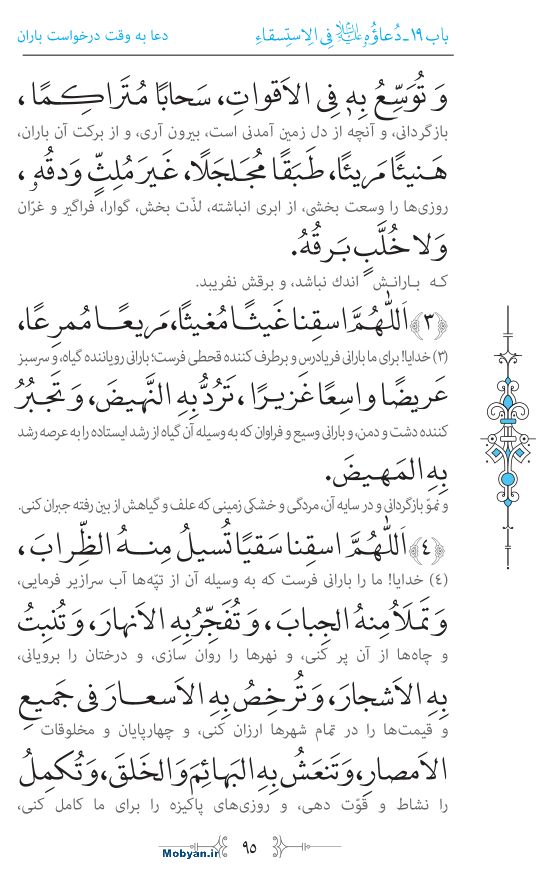 باب ۱۹ـ دُعاؤُهُ علیه‌السلام فِی الِاستِسقاءِ
دعا به وقت درخواست باران
وَ تُوَسِّعُ بِهِ فِی الاَقواتِ، سَحابًا مُتَراکِمًا،
بازگردانی، و آنچه از دل زمین آمدنی است، بیرون آری، و از برکت آن باران،
هَنیئًا مَریئًا، طَبَقًا مُجَلجَلًا، غَیرَ مُلِثٍّ وَدقُهُ،
روزی‌ها را وسعت بخشی، از ابری انباشته، لذّت بخش، گوارا، فراگیر و غرّان
وَلا خُلَّبٍ بَرقُهُ.
که بارانش اندك نباشد، و برقش نفریبد.
﴿۳﴾ اَللّٰهُمَّ اسقِنا غَیثًا مُغیثًا، مَریعًا مُمرِعًا،
(۳) خدایا! برای ما بارانی فریادرس و برطرف کننده قحطی فرست؛ بارانی رویاننده گیاه، و سرسبز
عَریضًا واسِعًا غَزیرًا، تَرُدُّ بِهِ النَّهیضَ، وَ تَجبُرُ
کننده دشت و دمن، و بارانی وسیع و فراوان که به وسیله آن گیاه از رشد ایستاده را به عرصه رشد
بِهِ المَهیضَ.
و نموّ بازگردانی و در سایه آن، مردگی و خشکی زمینی که علف و گیاهش از بین رفته جبران کنی.
﴿۴﴾ اَللّٰهُمَّ اسقِنا سَقیًا تُسیلُ مِنهُ الظِّرابَ،
(۴) خدایا! ما را بارانی فرست که به وسیله آن از تپّه‌ها آب سرازیر فرمایی،
وَ تَملَأُ مِنهُ الجِبابَ، وَ تُفَجِّرُ بِهِ الاَنهارَ، وَ تُنبِتُ
و چاه‌ها از آن پر کنی، و نهرها را روان سازی، و درختان را برویانی،
بِهِ الاَشجارَ، وَ تُرخِصُ بِهِ الاَسعارَ فی جَمیعِ
و قیمت‌ها را در تمام شهرها ارزان کنی، و چهارپایان و مخلوقات
الاَمصارِ، وَ تَنعَشُ بِهِ البَهائِمَ وَ الخَلقَ، وَ تُکمِلُ
را نشاط و قوّت دهی، و روزی‌های پاکیزه را برای ما کامل کنی،
۹۵
Mobyan.ir